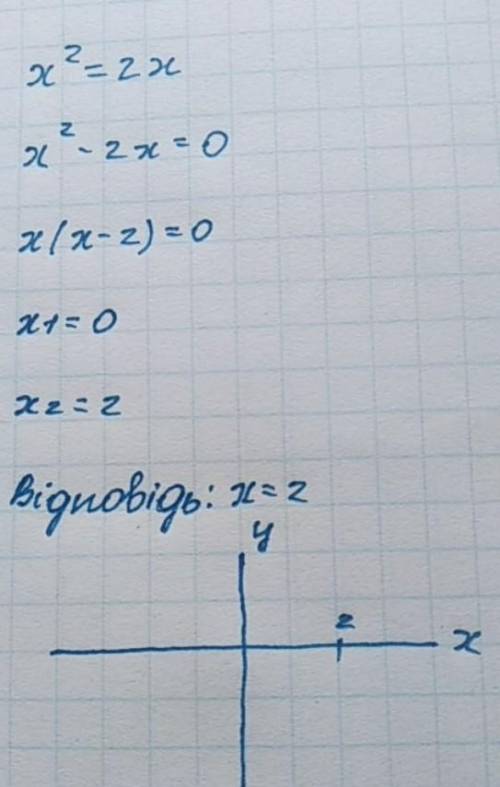 x² = 2x
x² - 2x = 0
x(x-2) = 0
x1 = 0
x2 = 2
Відповідь: x = 2
y
2
x